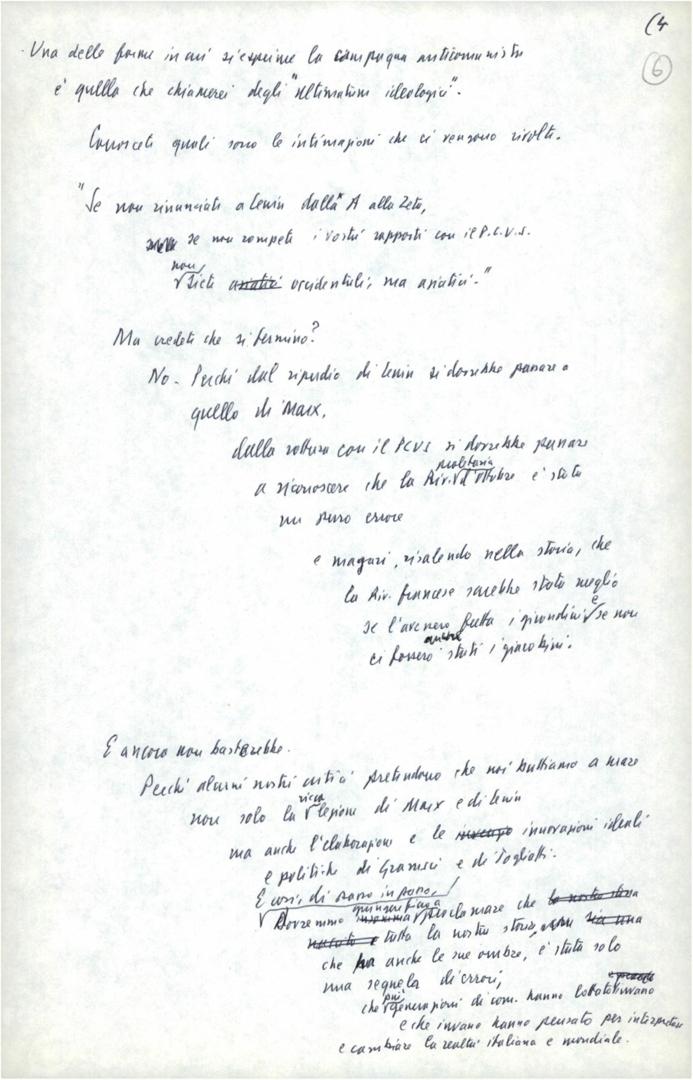 (4
6
- Una delle forme in cui si esprime la campagna anticomunista
è quella che chiamerei degli "ultimatum ideologici".
Conoscete quali sono le intimazioni che ci vengono rivolte.
"Se non rinunciate a Lenin dalla A alla Zeta,
se non rompete i vostri rapporti con il P.C.U.S.
non
siete asiatici occidentali, ma asiatici."
Ma credete che si fermino?
No - Perché dal ripudio di Lenin si dovrebbe passare a
quello di Marx,
dalla rottura con il PCUS si dovrebbe passare
proletaria
a riconoscere che la Riv. d'ottobre è stata
un puro errore
e magari, risalendo nella storia, che
la Riv. francese sarebbe stata meglio
e
se l'avessero fatta i girondini se non
anche
ci fossero stati i giacobini.
E ancora non basterebbe.
Perché alcuni nostri critici pretendono che noi buttiamo a mare
ricca
non solo la lezione di Marx e di Lenin
ma anche l'elaborazione e le innovazioni ideali
e politiche di Gramsci e di Togliatti.
E così, di passo in passo,
Dovremmo proclamare che la nostra storia
tutta la nostra storia,
che ha anche le sue ombre, è stata solo
una sequela di errori,
più
che generazioni di com. hanno lottato invano
e che invano hanno pensato per interpretare
e cambiare la realtà italiana e mondiale.